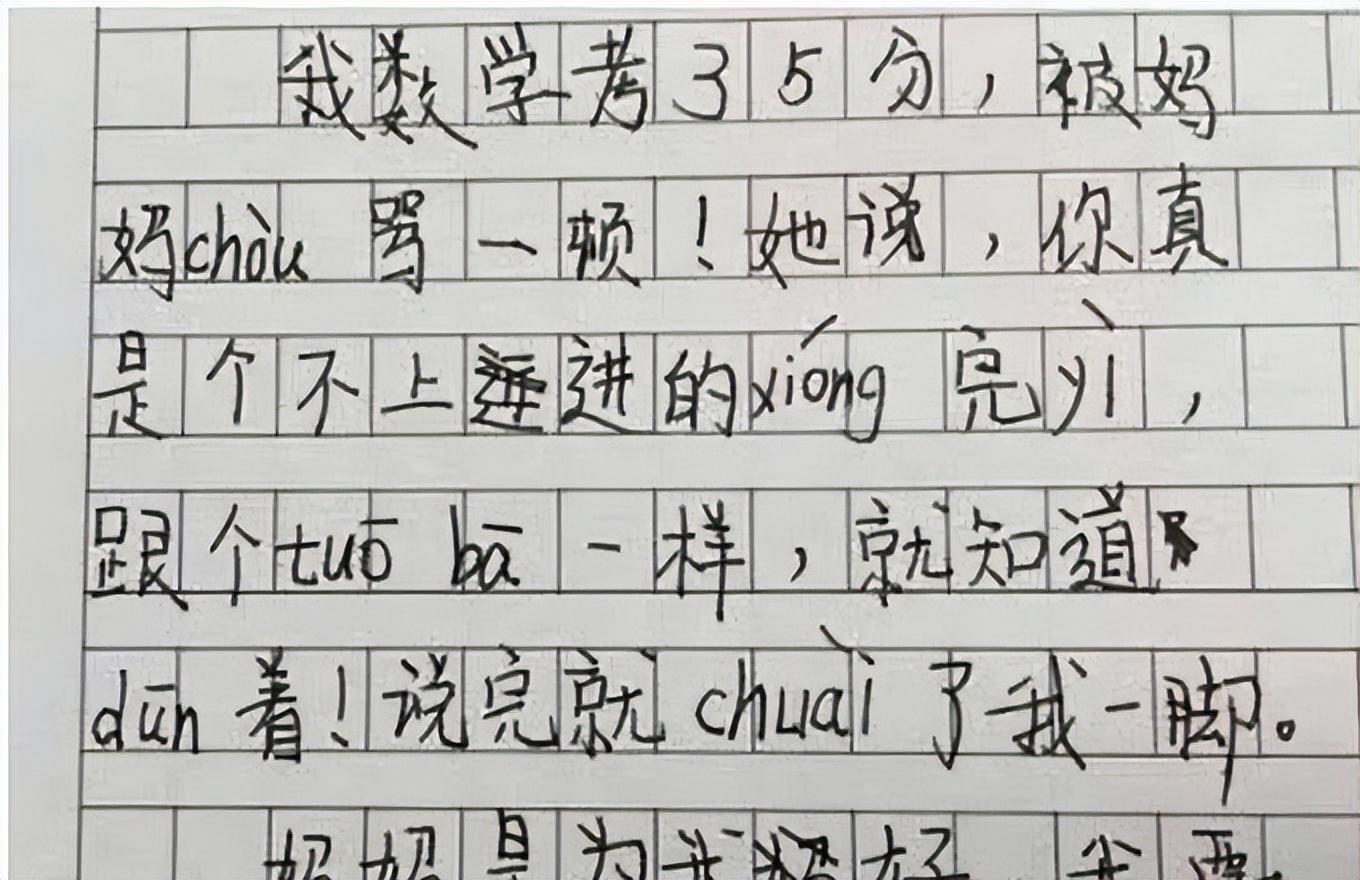 我数学考35分，被妈
妈chòu骂一顿！她说，你真
是个不上进的xióng完yì，
跟个tuō bā一样，就知道
dūn着！说完就chuài了我一脚。
妈妈是为我好 我要